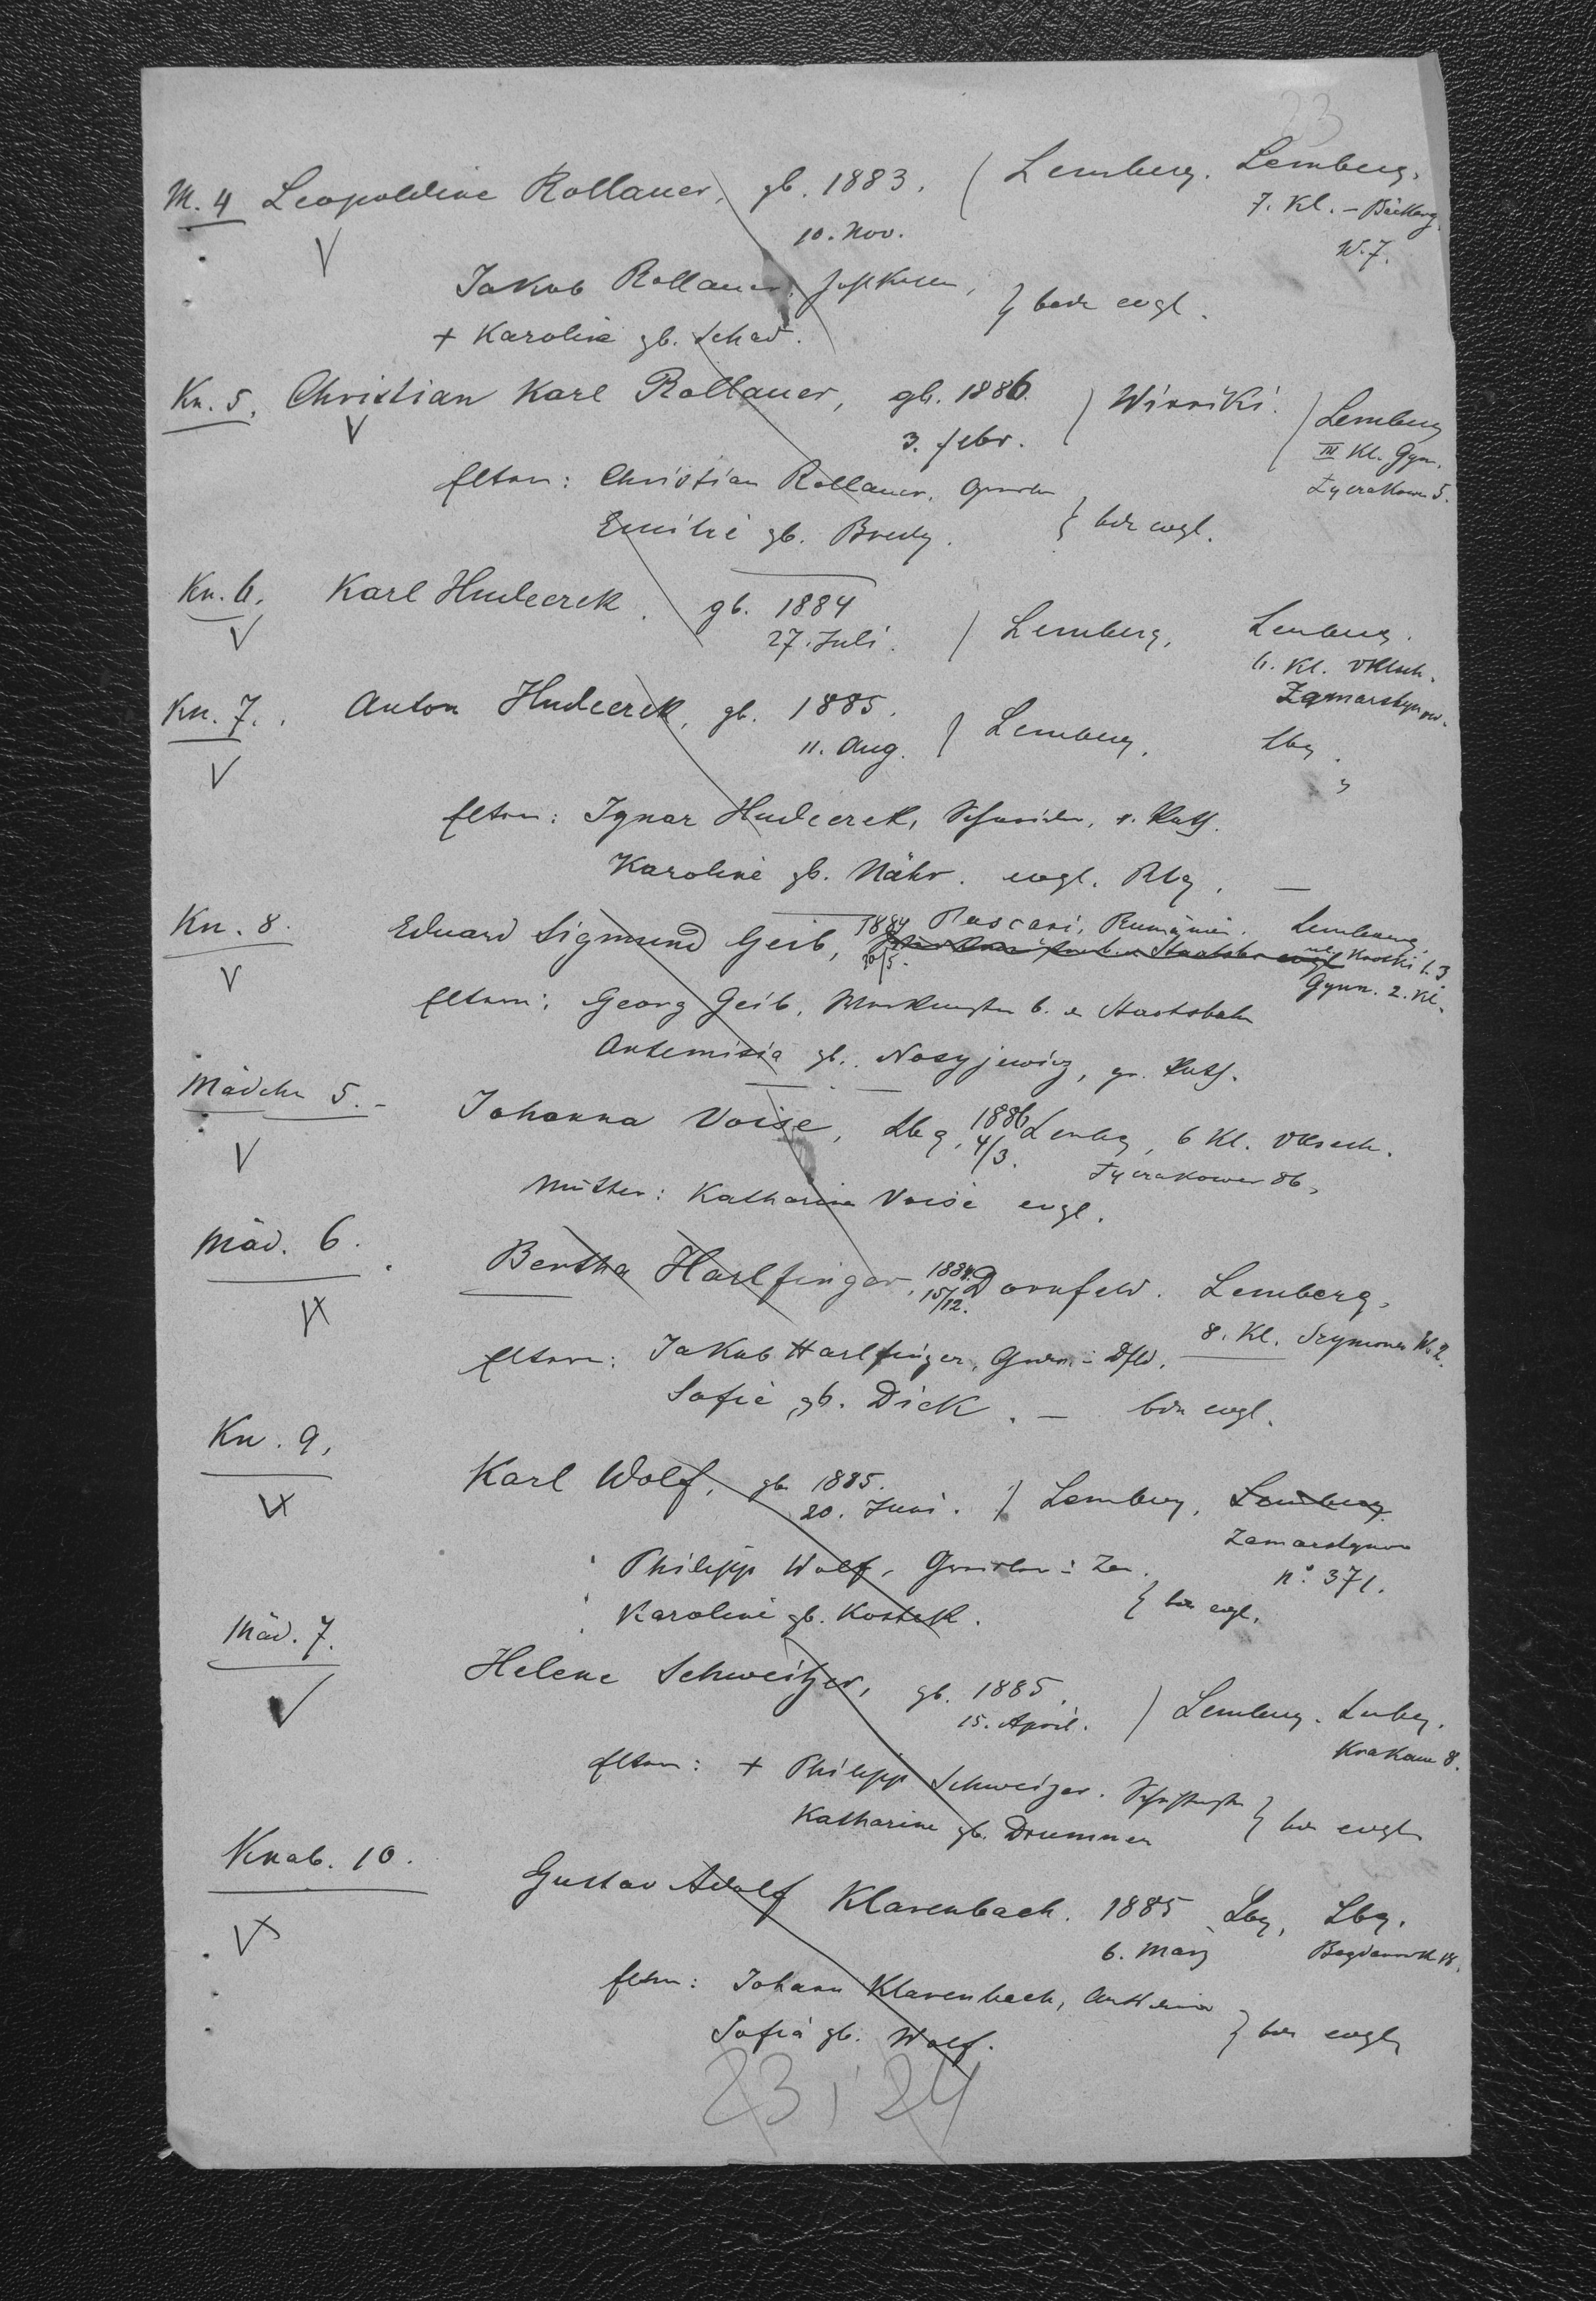 23
M. 4 Leopoldine Rollauer, gb. 1883. Lemberg. Lemberg.
10. Nov. 7. Kl. –
W. 7.
Jakob Rollauer, } beide evgl.
+ Karoline gb. Schad.
Kn. 5. Christian Karl Rollauer, gb. 1886. Winniki. Lemberg
3. Febr. III Kl. Gym.
Eltern: Christian Rollauer, Łyczakow 5.
Emilie gb. Bredy. } bde evgl.
Kn. 6. Karl Hudeczek. gb. 1884 Lemberg, Lemberg.
27. Juli. 6. Kl. Vklsch.
Kn. 7. Anton Hudeczek, gb. 1885. Lemberg. Lbg.
11. Aug. Zamarstynow.
Eltern: Ignaz Hudeczek, Schneider, r. kath.
Karoline gb. Nähr. evgl. Rbg. –
Kn. 8. Eduard Sigmund Geib, 1884 Pascani, Rumänien. Lemberg,
20/5. Gymn. 2. Kl.
Eltern: Georg Geib, Werkmeister b. d. Staatsbahn
Artemisia gb. Nosyjewicz, gr. kath.
Mädchen 5. – Johanna Voise, Lbg, 1886 Lembg, 6 Kl. Vklssch.
4/3. Łyczakower 86,
Mutter: Katharina Voise evgl.
Mäd. 6. Bertha Harlfinger, 1884. Dornfeld. Lemberg,
15/12. 8. Kl. Szymonow W. 2.
Eltern: Jakob Harlfinger, Grdw. i. Dfld.
Sofie gb. Dick. – bde evgl.
Kn. 9. Karl Wolf, gb 1885. Lemberg, Lemberg.
20. Juni. Zamarstynow
Philipp Wolf, n° 371.
Karoline gb. Kostek. } bde evgl.
Mäd. 7. Helene Schweitzer, gb. 1885. Lemberg. Lmbg.
15. April. Krakau 8.
Eltern: + Philipp Schweizer. } bde evgl
Katharine gb. Drummer
Knab. 10. Gustav Adolf Klarenbach. 1885 Lbg, Lbg.
6. März
Eltern: Johann Klarenbach, } bde evgl
Sofia gb. Wolf.
23 i 24